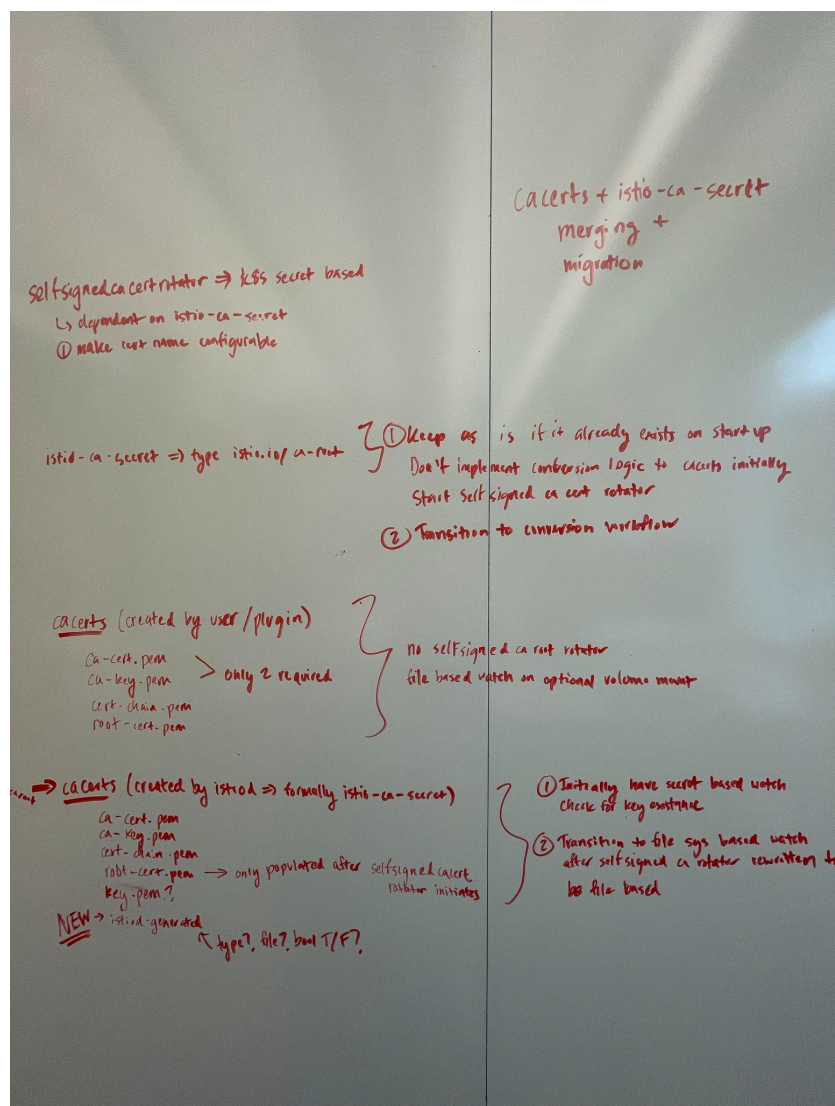 cacerts + istio-ca-secret
merging +
migration
selfsignedcacertrotator ⇒ k8s secret based
↳ dependant on istio-ca-secret
① make cert name configurable
istio-ca-secret ⇒ type istio.io/ca-root
① Keep as is if it already exists on startup
Don't implement conversion logic to cacerts initially
Start selfsigned ca cert rotator
② Transition to conversion workflow
cacerts (created by user/plugin)
ca-cert.pem
ca-key.pem
cert-chain.pem
root-cert.pem
> only 2 required
no selfsigned ca root rotator
file based watch on optional volume mount
→ cacerts (created by istiod ⇒ formally istio-ca-secret)
ca-cert.pem
ca-key.pem
cert-chain.pem
root-cert.pem → only populated after selfsignedcacert
rotator initiates
key.pem?
NEW → istiod-generated
↖ type?, file?, bool T/F?
① Initially have secret based watch
check for key existance
② Transition to file sys based watch
after selfsigned ca rotator rewritten to
be file based